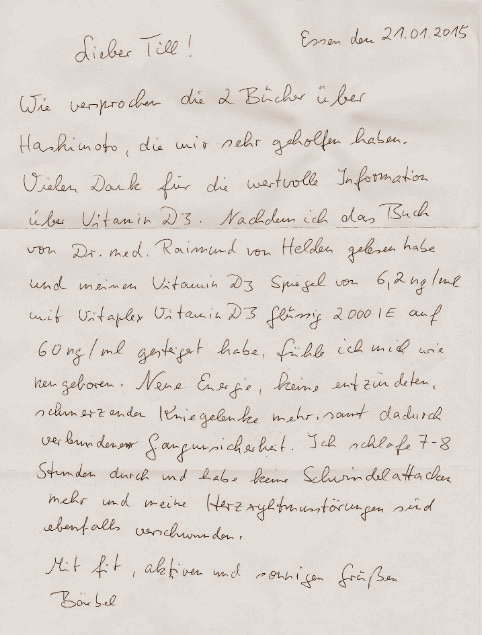 Essen den 21.01.2015
Lieber Till!
Wie versprochen die 2 Bücher über
Hashimoto, die mir sehr geholfen haben.
Vielen Dank für die wertvolle Information
über Vitamin D3. Nachdem ich das Buch
von Dr. med. Raimund von Helden gelesen habe
und meinen Vitamin D3 Spiegel von 6,2 ng/ml
mit Vitaplex Vitamin D3 flüssig 2000 IE auf
60 ng/ml gesteigert habe, fühle ich mich wie
neugeboren. Neue Energie, keine entzündeten,
schmerzenden Kniegelenke mehr, samt dadurch
verbundener Gangunsicherheit. Ich schlafe 7-8
Stunden durch und habe keine Schwindelattacken
mehr und meine Herzrhytmusstörungen sind
ebenfalls verschwunden.
Mit fit, aktiven und sonnigen Grüßen
Bärbel